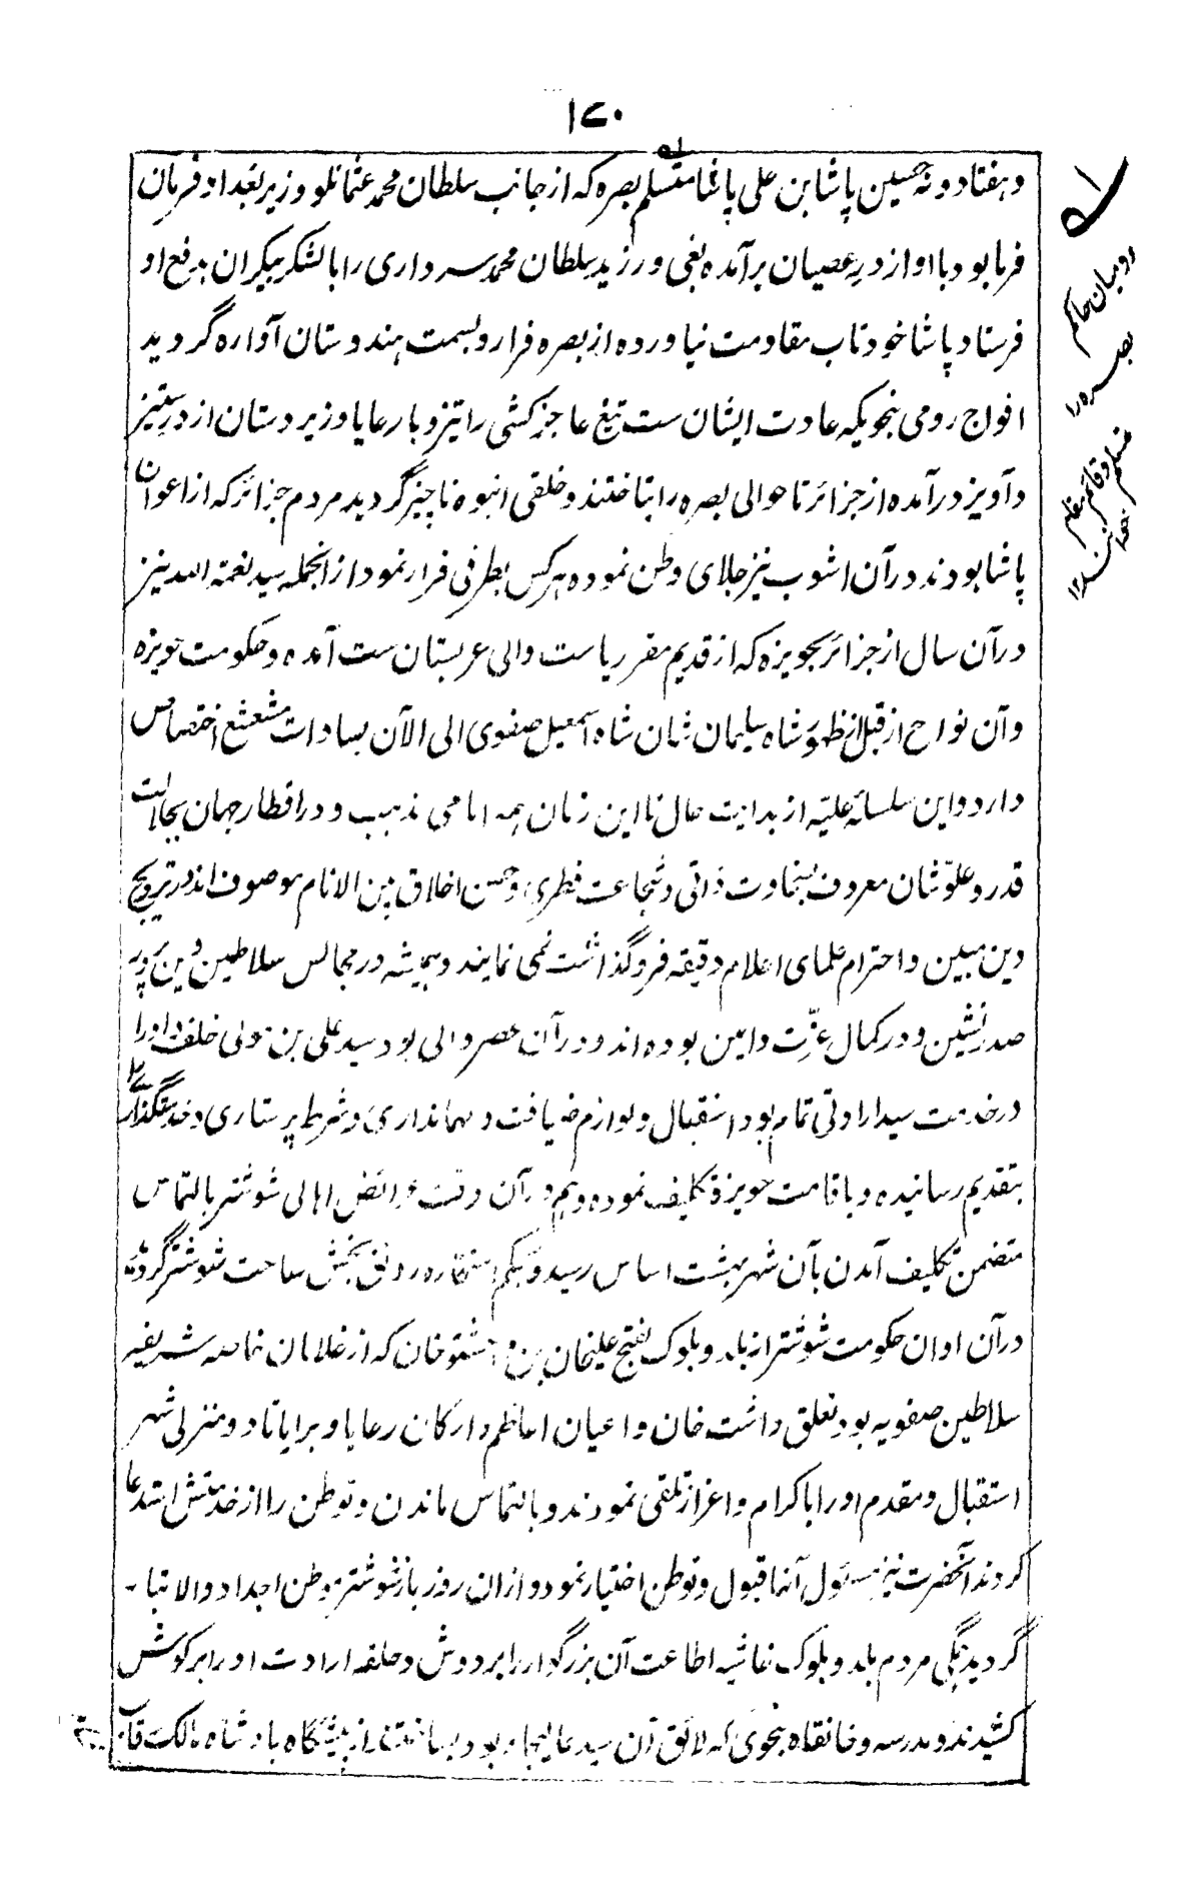 ۱۷۰
و هفتاد و نه حسین پاشا بن علی پاشا متسلم بصره که از جانب سلطان محمد عثمانلو و زیر بغداد فرمان
فرما بود با او از در عصیان برآمده بغی ورزید سلطان محمد سرداری را با لشکر بیکران بدفع او
فرستاد پاشا خود تاب مقاومت نیاورده از بصره فرار و بسمت هندوستان آواره گردید
افواج رومی بنحویکه عادت ایشان ست تیغ عاجز کشی را تیز و با رعایا و زیردستان از در ستیز
و آویز درآمده از جزائر تا حوالی بصره را بتاختند و خلقی انبوه ناچیز گردید مردم جزائر که از اعوان
پاشا بودند در آن اشوب نیز جلای وطن نموده هر کس بطرفی فرار نمود از انجمله سید نعمة الله نیز
در آن سال از جزائر بحویزه که از قدیم مقر ریاست والی عربستان ست آمده و حکومت حویزه
و آن نواح از قبل از ظهور شاه سلیمان شان شاه اسمعیل صفوی الی الآن بسادات مشعشع اختصاص
دارد و این سلسله علیّه از بدایت حال تا این زمان همه امامی مذهب و در اقطار جهان بجلالت
قدر و علوّ شان معروف بسخاوت ذاتی و شجاعت فطری و حسن اخلاق بین الانام موصوف اند در ترویج
دین مبین و احترام علمای اعلام دقیقه فروگذاشت نمی نمایند و همیشه در مجالس سلاطین دین پرور
صدرنشین و در کمال عزّت و امین بوده اند و در آن عصر والی بود سید علی بن مولی خلف و او را
در خدمت سید ارادتی تمام بود استقبال و لوازم ضیافت و مهمانداری و شرایط پرستاری و خدمتگذاری را
بتقدیم رسانیده و باقامت حویزة تکلیف نموده و هم در آن وقت عرائض اهالی شوشتر بالتماس
متضمن تکلیف آمدن بآن شهر بهشت اساس رسید و بحکم استخاره رونق بخش ساحت شوشتر گردید
در آن اوان حکومت شوشتر از بلد و بلوک بفتح علیخان بن و اخشتو خان که از غلامان خاصه شریفه
سلاطین صفویه بود تعلق داشت خان و اعیان اعاظم و ارکان رعایا و برایا تا دو منزلی شهر
استقبال و مقدم او را باکرام و اعزاز تلقی نمودند و بالتماس ماندن و توطن را از خدمتش استدعا
کردند آنحضرت نیز مسئول آنها قبول و توطن اختیار نمود و از ان روز باز شوشتر موطن اجداد والاتبار
گردید همگی مردم بلد و بلوک غاشیه اطاعت آن بزرگوار را بر دوش و حلقه ارادت او را بر گوش
کشیدند و مدرسه و خانقاه بنحوی که لائق آن سید عالیجاه بود بساختند از پیشگاه بادشاه مالک رقاب
له
رومیان حاکم
بصره را
متسلم و قائم مقام